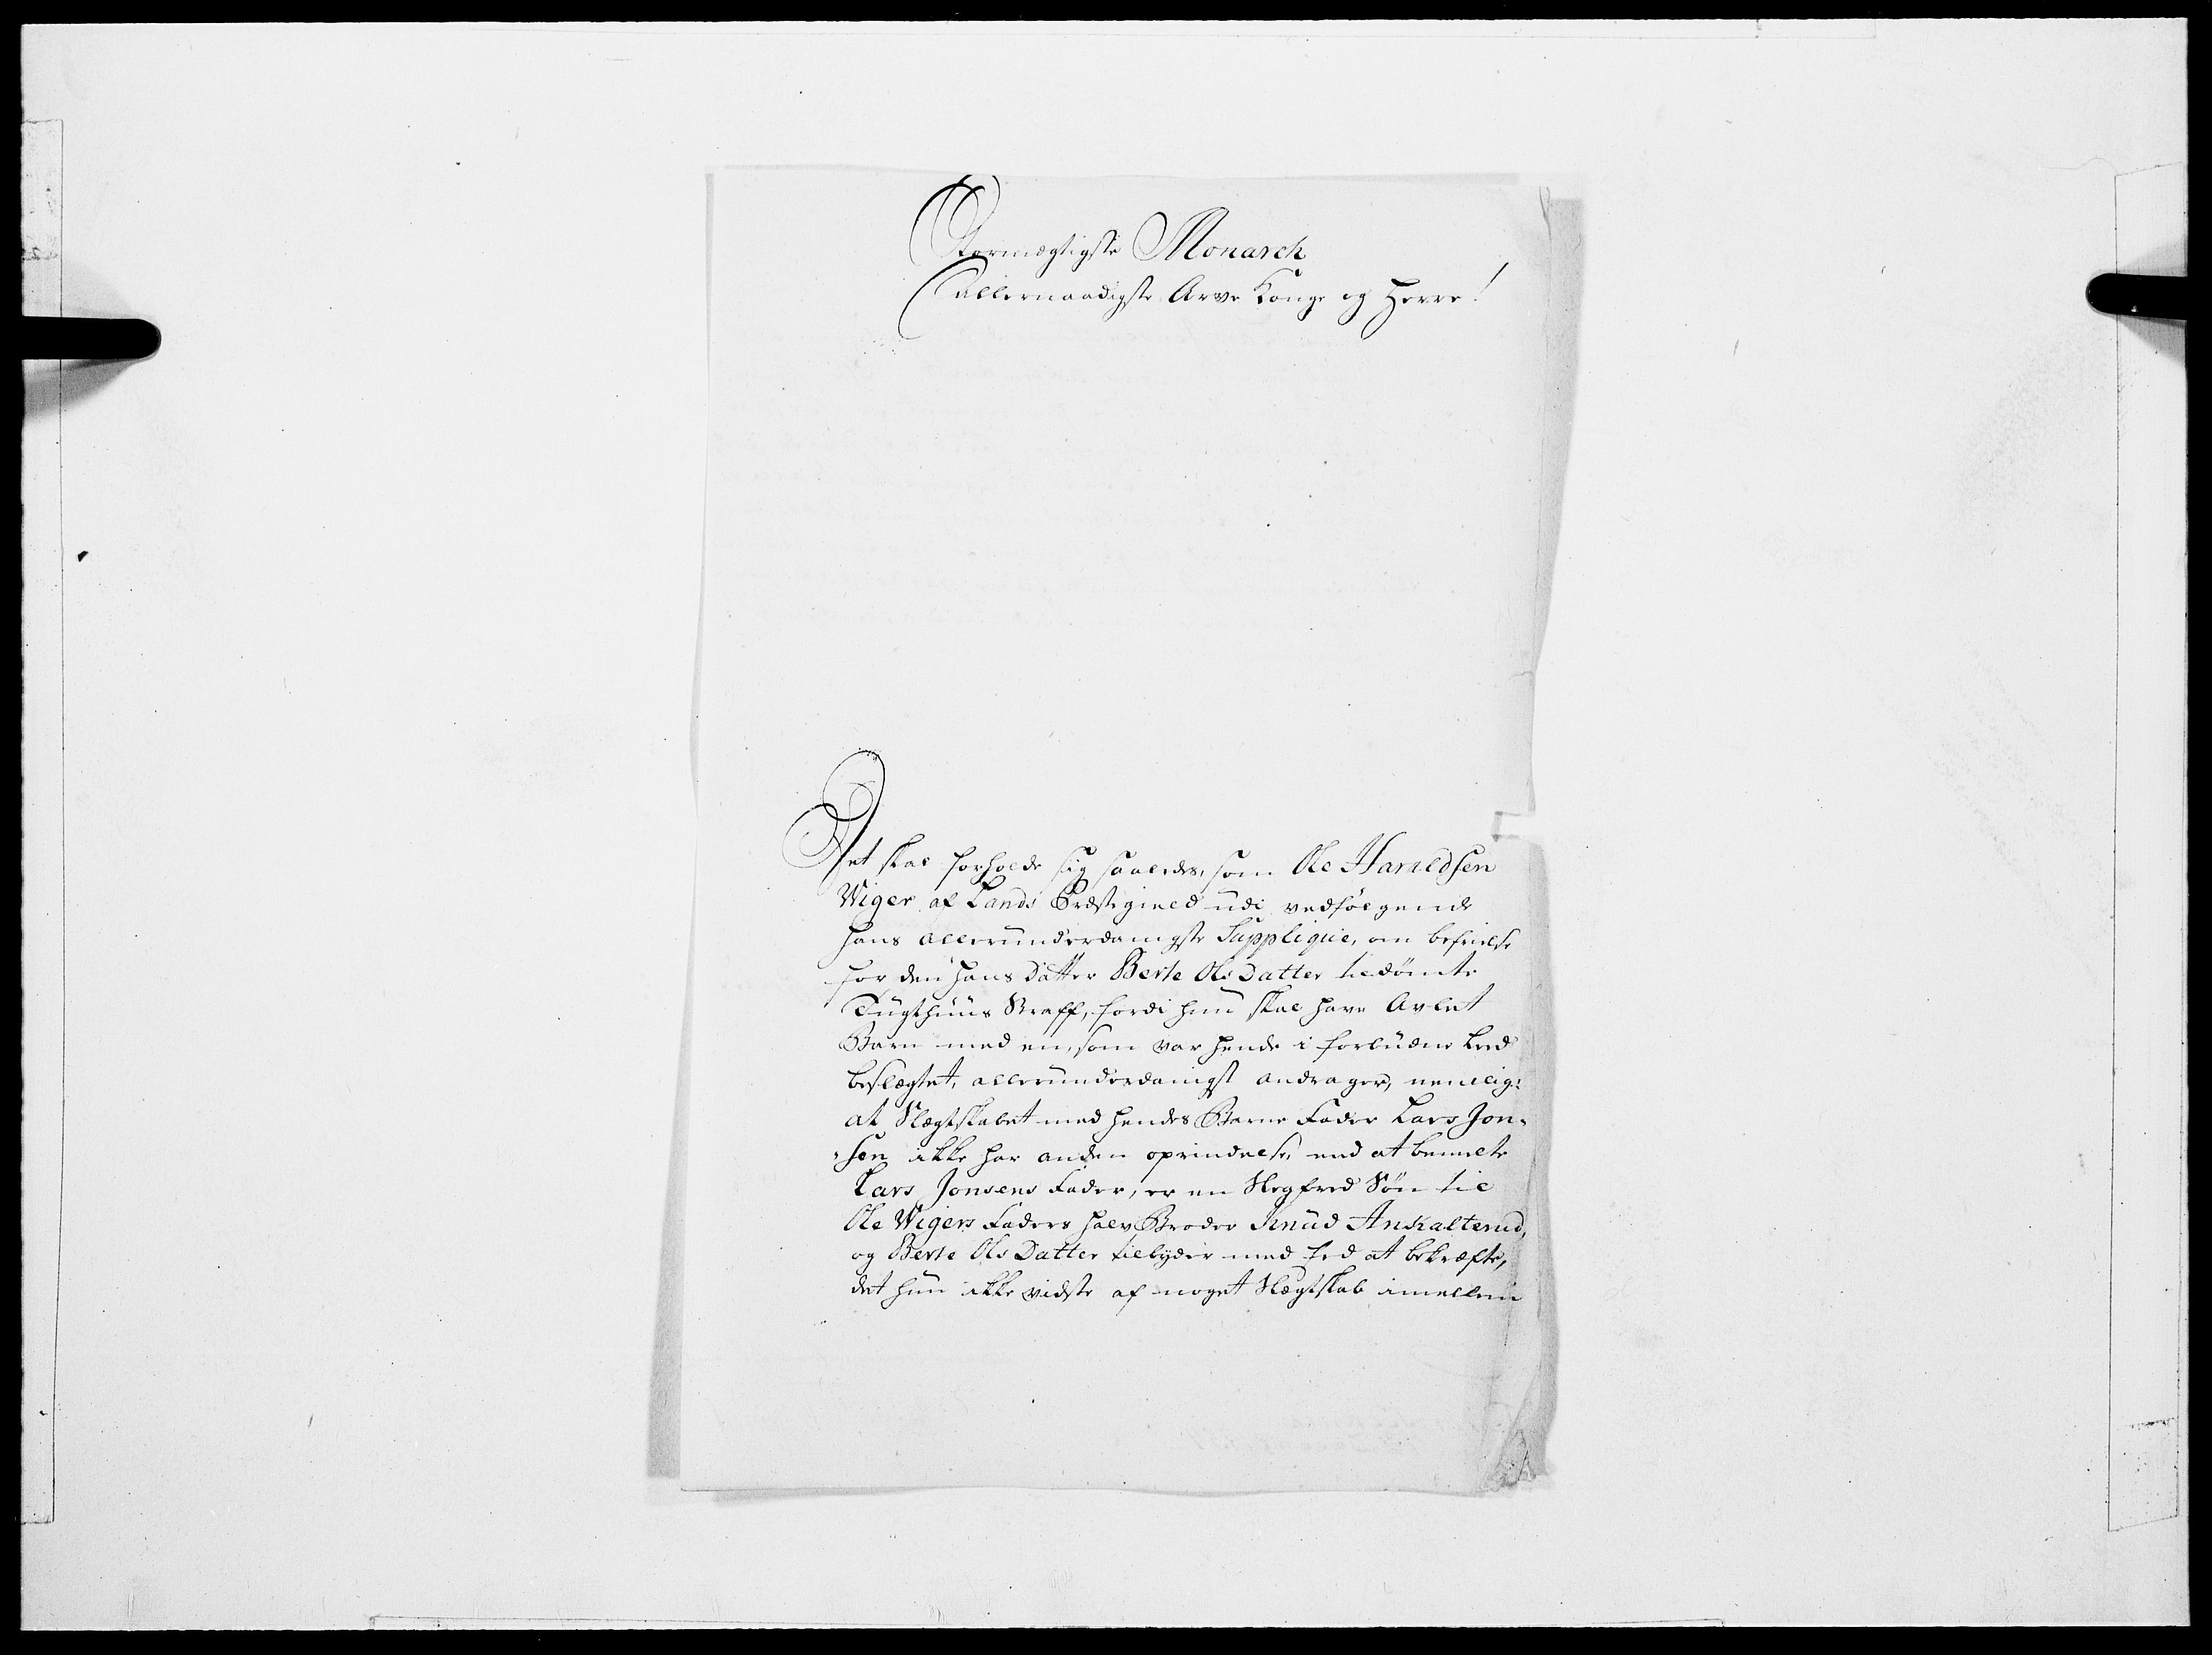 Stormægtigste Monarch
Allernaadigste Arve Konge og Herre!
Det skal forholde sig saaledes, som Ole Haraldsen
Wiger af Lands Præstegield udi vedføigende
hans allerunderdanigste Supplique, om befrielse
for den hans Datter Berte Ols Datter tildømte
Tugthuus Straff, fordi hun skal have Avlet
Barn med en, som var hende i forbudne Leed
beslægtet, allerunderdanigst andrager, nemlig:
at Slægtskabet med hendes Barne Fader Lars Jon-
sen ikke har anden oprindelse, end at bemelte
Lars Jonsens Fader, er en Slegfred Søn til
Ole Wigers Faders halv Broder Knud Ankalterud,
og Berte Ols Datter tilbyder med Eed at bekræfte,
det hun ikke vidste af noget Slægtskab imellem